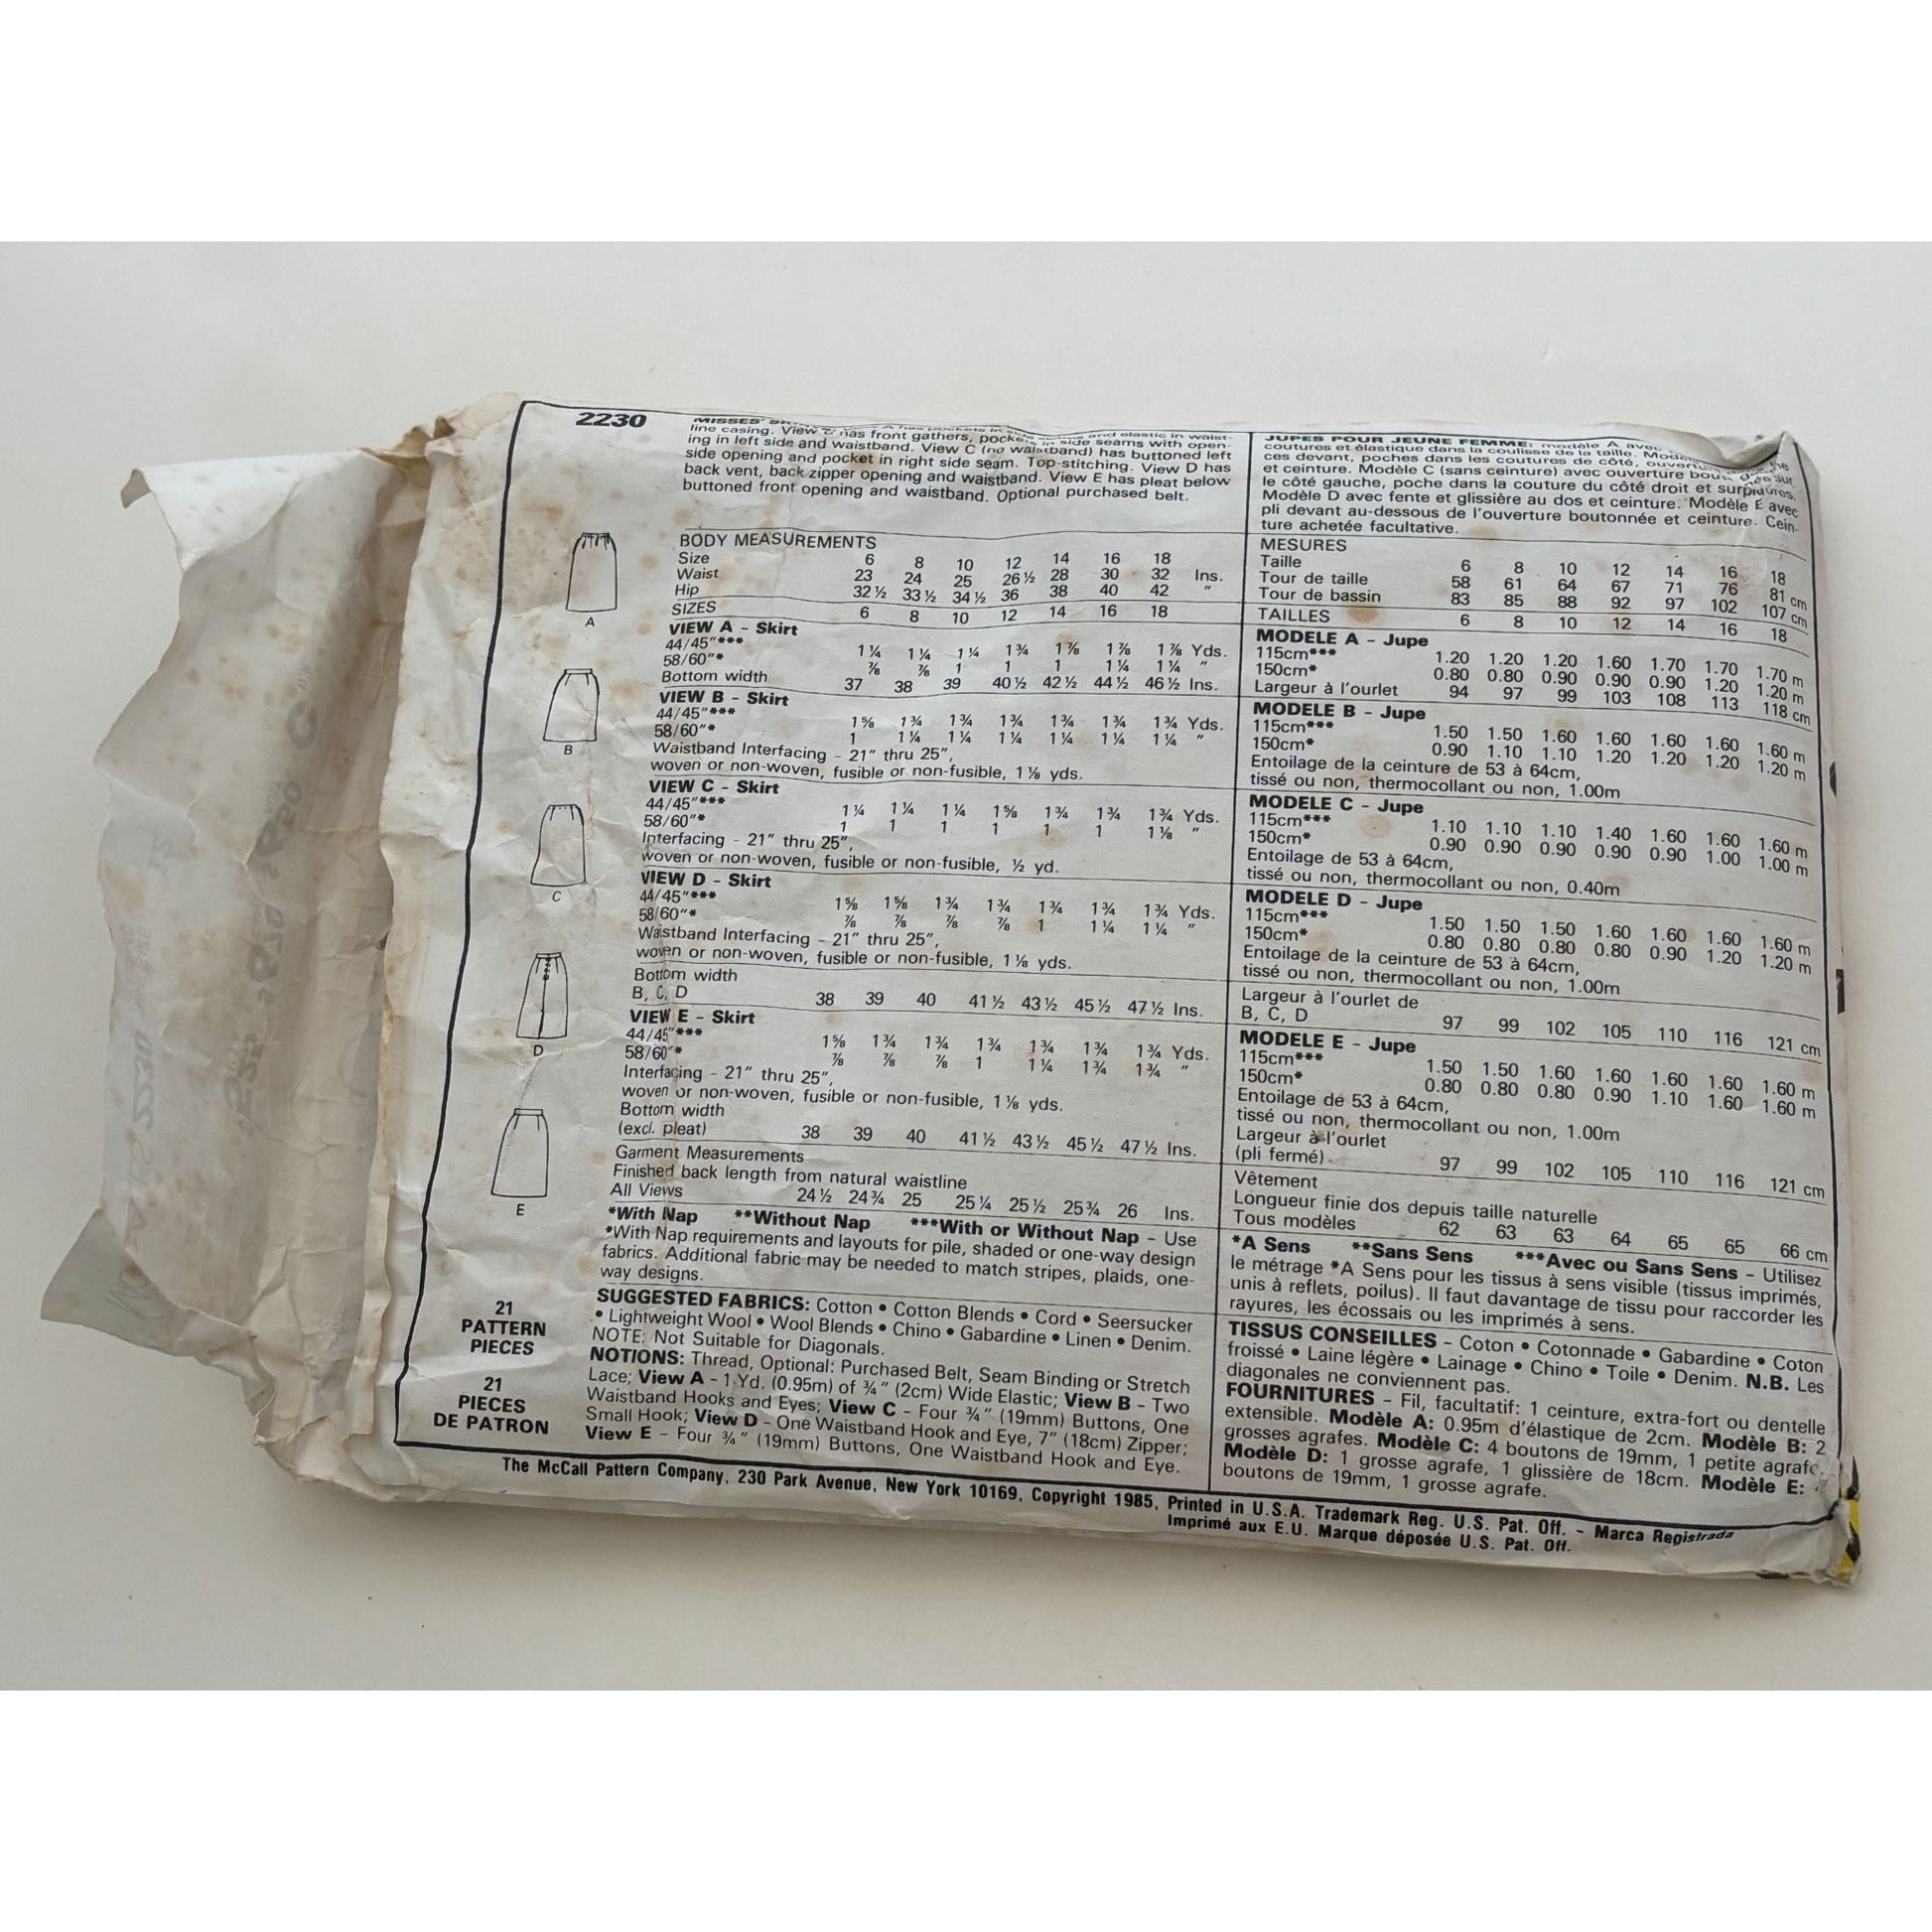 2230
MISSES'
line casing. View B has front gathers, pockets in side seams with open-
ing in left side and waistband. View C (no waistband) has buttoned left
side opening and pocket in right side seam. Top-stitching. View D has
back vent, back zipper opening and waistband. View E has pleat below
buttoned front opening and waistband. Optional purchased belt.
BODY MEASUREMENTS
Size 6 8 10 12 14 16 18
Waist 23 24 25 26½ 28 30 32 Ins.
Hip 32½ 33½ 34½ 36 38 40 42 "
SIZES 6 8 10 12 14 16 18
VIEW A - Skirt
44/45"*** 1¼ 1¼ 1¼ 1¾ 1⅞ 1⅞ 1⅞ Yds.
58/60"* ⅞ ⅞ 1 1 1 1¼ 1¼ "
Bottom width 37 38 39 40½ 42½ 44½ 46½ Ins.
VIEW B - Skirt
44/45"*** 1⅝ 1¾ 1¾ 1¾ 1¾ 1¾ 1¾ Yds.
58/60"* 1 1¼ 1¼ 1¼ 1¼ 1¼ 1¼ "
Waistband Interfacing - 21" thru 25",
woven or non-woven, fusible or non-fusible, 1⅛ yds.
VIEW C - Skirt
44/45"*** 1¼ 1¼ 1¼ 1⅝ 1¾ 1¾ 1¾ Yds.
58/60"* 1 1 1 1 1 1 1⅛ "
Interfacing - 21" thru 25",
woven or non-woven, fusible or non-fusible, ½ yd.
VIEW D - Skirt
44/45"*** 1⅝ 1⅝ 1¾ 1¾ 1¾ 1¾ 1¾ Yds.
58/60"* ⅞ ⅞ ⅞ ⅞ 1 1¼ 1¼ "
Waistband Interfacing - 21" thru 25",
woven or non-woven, fusible or non-fusible, 1⅛ yds.
Bottom width
B, C, D 38 39 40 41½ 43½ 45½ 47½ Ins.
VIEW E - Skirt
44/45"*** 1⅝ 1¾ 1¾ 1¾ 1¾ 1¾ 1¾ Yds.
58/60"* ⅞ ⅞ ⅞ 1 1¼ 1¾ 1¾ "
Interfacing - 21" thru 25",
woven or non-woven, fusible or non-fusible, 1⅛ yds.
Bottom width
(excl. pleat) 38 39 40 41½ 43½ 45½ 47½ Ins.
Garment Measurements
Finished back length from natural waistline
All Views 24½ 24¾ 25 25¼ 25½ 25¾ 26 Ins.
*With Nap **Without Nap ***With or Without Nap - Use
*With Nap requirements and layouts for pile, shaded or one-way design
fabrics. Additional fabric may be needed to match stripes, plaids, one-
way designs.
SUGGESTED FABRICS: Cotton • Cotton Blends • Cord • Seersucker
• Lightweight Wool • Wool Blends • Chino • Gabardine • Linen • Denim.
NOTE: Not Suitable for Diagonals.
NOTIONS: Thread, Optional: Purchased Belt, Seam Binding or Stretch
Lace; View A - 1 Yd. (0.95m) of ¾" (2cm) Wide Elastic; View B - Two
Waistband Hooks and Eyes; View C - Four ¾" (19mm) Buttons, One
Small Hook; View D - One Waistband Hook and Eye, 7" (18cm) Zipper;
View E - Four ¾" (19mm) Buttons, One Waistband Hook and Eye.
A
B
C
D
E
21
PATTERN
PIECES
21
PIECES
DE PATRON
JUPES POUR JEUNE FEMME: modèle A avec
coutures et élastique dans la coulisse de la taille.
ces devant, poches dans les coutures de côté,
et ceinture. Modèle C (sans ceinture) avec ouverture sur
le côté gauche, poche dans la couture du côté droit et surpiqûres.
Modèle D avec fente et glissière au dos et ceinture. Modèle E avec
pli devant au-dessous de l'ouverture boutonnée et ceinture. Cein-
ture achetée facultative.
MESURES
Taille 6 8 10 12 14 16 18
Tour de taille 58 61 64 67 71 76 81 cm
Tour de bassin 83 85 88 92 97 102 107 cm
TAILLES 6 8 10 12 14 16 18
MODELE A - Jupe
115cm*** 1.20 1.20 1.20 1.60 1.70 1.70 1.70 m
150cm* 0.80 0.80 0.90 0.90 0.90 1.20 1.20 m
Largeur à l'ourlet 94 97 99 103 108 113 118 cm
MODELE B - Jupe
115cm*** 1.50 1.50 1.60 1.60 1.60 1.60 1.60 m
150cm* 0.90 1.10 1.10 1.20 1.20 1.20 1.20 m
Entoilage de la ceinture de 53 à 64cm,
tissé ou non, thermocollant ou non, 1.00m
MODELE C - Jupe
115cm*** 1.10 1.10 1.10 1.40 1.60 1.60 1.60 m
150cm* 0.90 0.90 0.90 0.90 0.90 1.00 1.00 m
Entoilage de 53 à 64cm,
tissé ou non, thermocollant ou non, 0.40m
MODELE D - Jupe
115cm*** 1.50 1.50 1.50 1.60 1.60 1.60 1.60 m
150cm* 0.80 0.80 0.80 0.80 0.90 1.20 1.20 m
Entoilage de la ceinture de 53 à 64cm,
tissé ou non, thermocollant ou non, 1.00m
Largeur à l'ourlet de
B, C, D 97 99 102 105 110 116 121 cm
MODELE E - Jupe
115cm*** 1.50 1.50 1.60 1.60 1.60 1.60 1.60 m
150cm* 0.80 0.80 0.80 0.90 1.10 1.60 1.60 m
Entoilage de 53 à 64cm,
tissé ou non, thermocollant ou non, 1.00m
Largeur à l'ourlet
(pli fermé) 97 99 102 105 110 116 121 cm
Vêtement
Longueur finie dos depuis taille naturelle
Tous modèles 62 63 63 64 65 65 66 cm
*A Sens **Sans Sens ***Avec ou Sans Sens - Utilisez
le métrage *A Sens pour les tissus à sens visible (tissus imprimés,
unis à reflets, poilus). Il faut davantage de tissu pour raccorder les
rayures, les écossais ou les imprimés à sens.
TISSUS CONSEILLES - Coton • Cotonnade • Gabardine • Coton
froissé • Laine légère • Lainage • Chino • Toile • Denim. N.B. Les
diagonales ne conviennent pas.
FOURNITURES - Fil, facultatif: 1 ceinture, extra-fort ou dentelle
extensible. Modèle A: 0.95m d'élastique de 2cm. Modèle B: 2
grosses agrafes. Modèle C: 4 boutons de 19mm, 1 petite agrafe.
Modèle D: 1 grosse agrafe, 1 glissière de 18cm. Modèle E:
boutons de 19mm, 1 grosse agrafe.
The McCall Pattern Company, 230 Park Avenue, New York 10169, Copyright 1985, Printed in U.S.A. Trademark Reg. U.S. Pat. Off. - Marca Registrada
Imprimé aux E.U. Marque déposée U.S. Pat. Off.